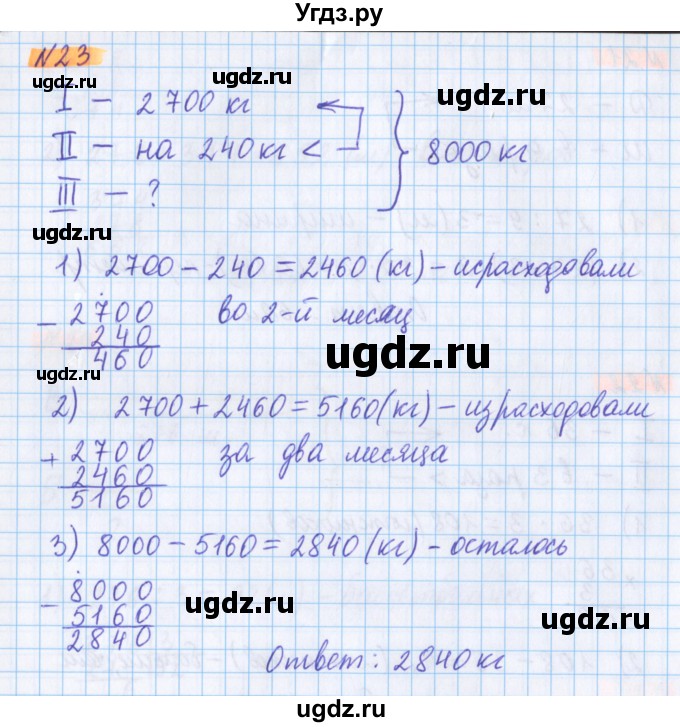 Угдз.ру
N23
ugdz.ru ugdz.ru
I – 2700 кг
ugdz.ru
II – на 240 кг < } 8000 кг
III – ?
ugdz.ru ugdz.ru
1) 2700 – 240 = 2460 (кг) – израсходовали
– 2700 во 2-й месяц
240
460
ugdz.ru
ugdz.ru
2) 2700 + 2460 = 5160 (кг) – израсходовали
+ 2700 за два месяца
2460
5160
ugdz.ru ugdz.ru
3) 8000 – 5160 = 2840 (кг) – осталось
– 8000
5160
2840
ugdz.ru ugdz.ru
Ответ: 2840 кг